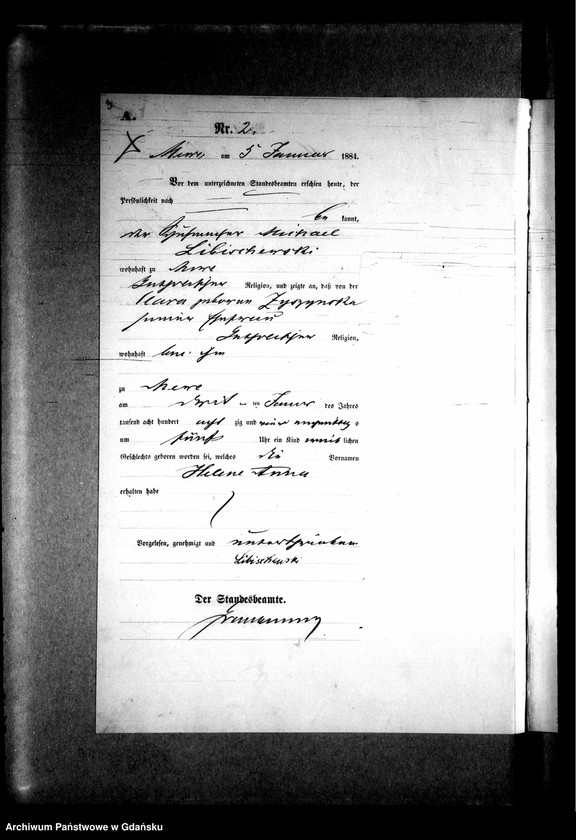 A.
Nr. 2.
Mewe, am 5 Januar 1884.
Vor dem unterzeichneten Standesbeamten erschien heute, der
Persönlichkeit nach
be kannt,
der Michael
Libischewski
wohnhaft zu Mewe
Religion, und zeigte an, daß von der
Clara geborene
seiner Ehefrau
Religion,
wohnhaft bei ihm
zu Mewe
am drei ten Januar des Jahres
tausend acht hundert acht zig und vier
um fünf Uhr ein Kind weib lichen
Geschlechts geboren worden sei, welches die Vornamen
Helene Anna
erhalten habe
Vorgelesen, genehmigt und unterschrieben
Libischewski
Der Standesbeamte.
Archiwum Państwowe w Gdańsku